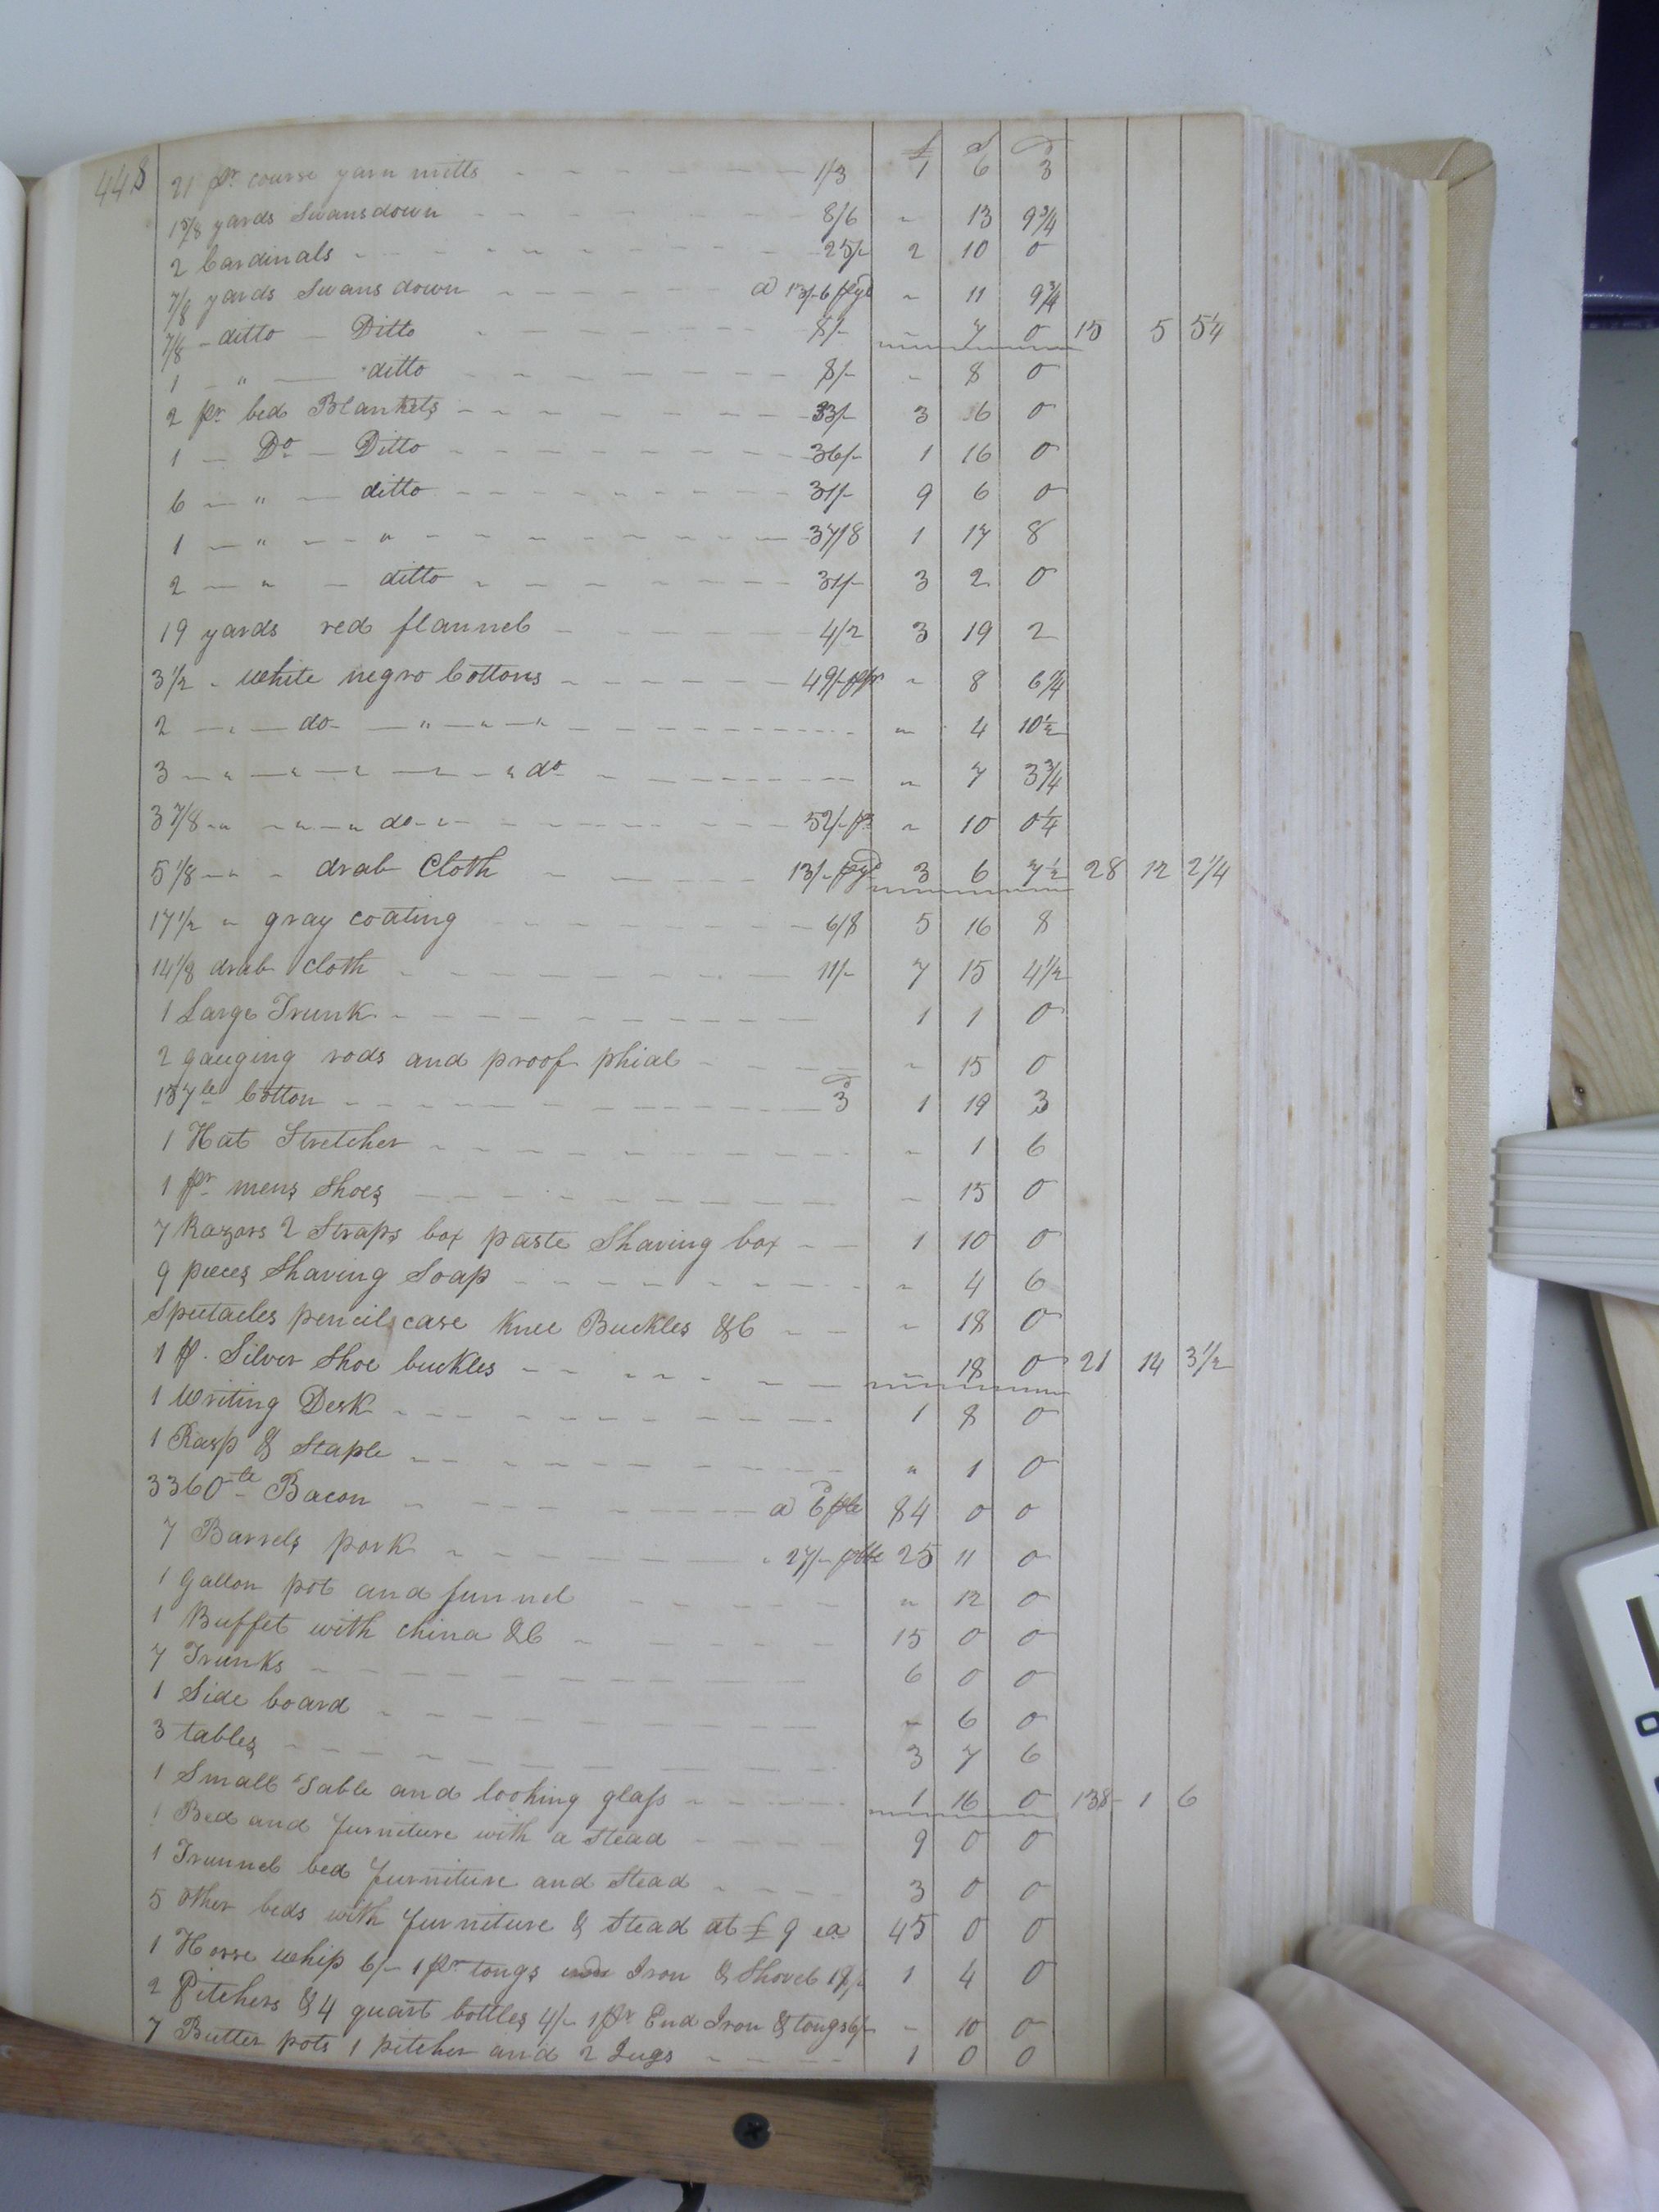 448
£ s d
21 pr course yarn mitts 1/3 1 6 3
1 5/8 yards Swansdown 8/6 " 13 9 3/4
2 Cardinals 25/- 2 10 0
7/8 yards Swansdown a 13/-6 pyd " 11 9 3/4
7/8 - ditto - Ditto 8/- " 7 0 15 5 5 1/4
1 " ditto 8/- " 8 0
2 pr bed Blankets 33/- 3 6 0
1 - Do - Ditto 36/- 1 16 0
6 - " - ditto 31/- 9 6 0
1 - " - " 37/8 1 17 8
2 - " - ditto 31/- 3 2 0
19 yards red flannel 4/2 3 19 2
3 1/2 " white negro Cottons 49/- ppr " 8 6 1/4
2 " do " " " " 4 10 1/2
3 " " " " " do " 7 3 3/4
3 7/8 " " " do " 52/- pp " 10 0 1/4
5 1/8 " " drab Cloth 13/- pyd 3 6 7 1/2 28 12 2 1/4
17 1/2 " gray coating 6/8 5 16 8
14 1/8 drab Cloth 11/- 7 15 4 1/2
1 Large Trunk 1 1 0
2 gauging rods and proof phial " 15 0
157 lb Cotton 3d 1 19 3
1 Hat Stretcher " 1 6
1 pr mens Shoes " 15 0
7 Razors 2 Straps box paste Shaving box 1 10 0
9 pieces Shaving Soap " 4 6
Spectacles pencil case Knee Buckles &C " 18 0
1 p. Silver Shoe buckles " 18 0 21 14 3 1/2
1 Writing Desk 1 8 0
1 Rasp & Staple " 1 0
3360 lb Bacon a 6d plb 84 0 0
7 Barrels pork 27/- pble 25 11 0
1 gallon pot and funnel " 12 0
1 Buffet with china &C 15 0 0
7 Trunks 6 0 0
1 Side board " 6 0
3 tables 3 7 6
1 Small Table and looking glass 1 16 0 138 - 1 6
1 Bed and furniture with a Stead 9 0 0
1 Trunnel bed furniture and Stead 3 0 0
5 Other beds with furniture & Stead at £ 9 ea 45 0 0
1 Horse whip 6/- 1 pr tongs Iron & Shovel 18/- 1 4 0
2 Pitchers & 4 quart bottles 4/- 1 pr End Iron & tongs 6/- - 10 0
7 Butter pots 1 pitcher and 2 Jugs 1 0 0